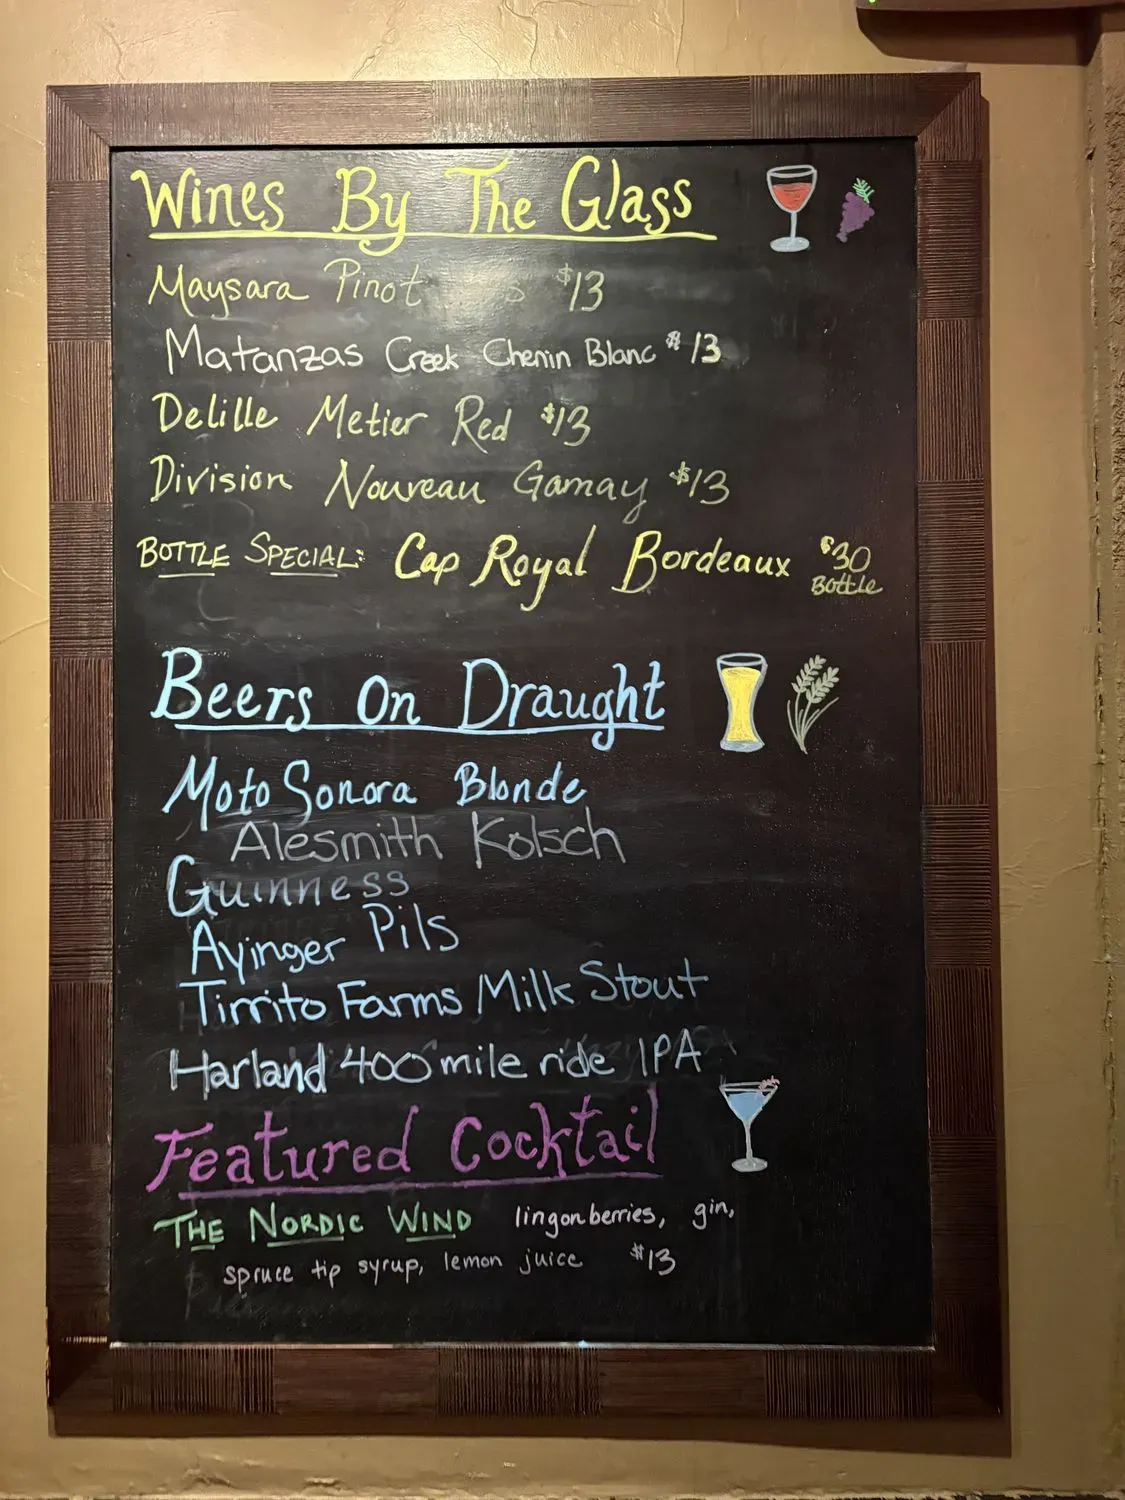 Wines By The Glass
Maysara Pinot $13
Matanzas Creek Chenin Blanc $13
Delille Metier Red $13
Division Nouveau Gamay $13
BOTTLE SPECIAL: Cap Royal Bordeaux $30 Bottle
Beers On Draught
Moto Sonora Blonde
Alesmith Kolsch
Guinness
Ayinger Pils
Tirrito Farms Milk Stout
Harland 400 mile ride IPA
Featured Cocktail
THE NORDIC WIND lingonberries, gin,
spruce tip syrup, lemon juice $13